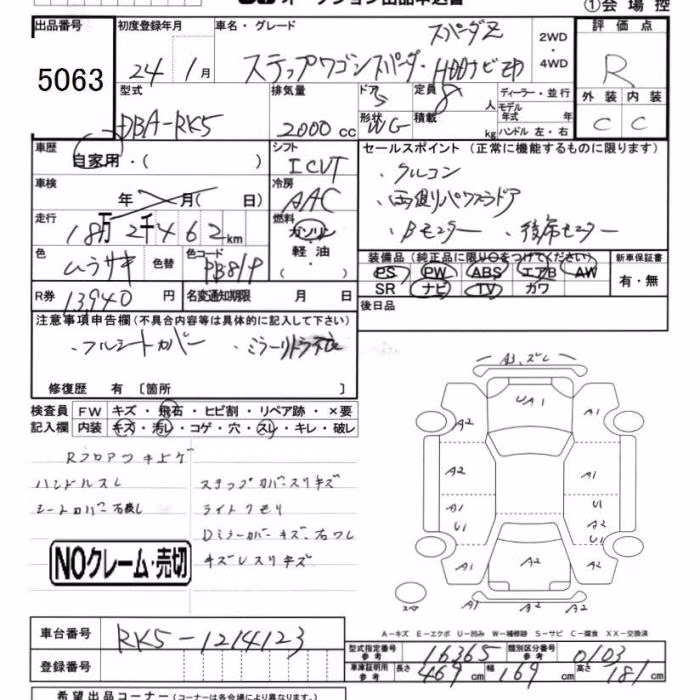 ①会場控
出品番号 初度登録年月 車名・グレード 評価点
5063
24年1月
スパーダZ
ステップワゴンスパーダ・HDDナビED
2WD
・
4WD
R
型式 排気量 ドア 定員 ディーラー・並行 外装 内装
DBA-RK5 2000cc 5 8人 モデル年式 年式 C C
形状 WG 積載 kg ハンドル 左・右
車歴 自家用・( ) シフト ICVT
セールスポイント (正常に機能するものに限ります)
・クルコン
・両側パワスラドア
・Bモニター ・後席モニター
車検 年 月( 日) 冷房 AAC
走行 18万2千462km 燃料 ガソリン・軽油・
色 ムラサキ 色替 色コード PB81P
装備品 (純正品に限り○をつけてください) 新車保証書
PS PW ABS エアB AW 有・無
SR ナビ TV カワ
R券 13,940円 名変通知期限 月 日 後日品
注意事項申告欄 (不具合内容等は具体的に記入して下さい)
・フルシートカバー ・ミラーリトラ不良
修復歴 有〔箇所 〕
検査員 FW キズ・飛石・ヒビ割・リペア跡・×要
記入欄 内装 キズ・汚レ・コゲ・穴・スレ・キレ・破レ
Rフロアツキ上ゲ
ハンドルスレ ステップカバースリキズ
ライトクモリ
Dミラーカバーキズ、右ワレ
キズレスリキズ
NOクレーム・売切
A3、ズレ
UA1
A1
A2
A1
A1
U1
A1
U1
U1
A1
A2
A2
A2
スペア
A-キズ E-エクボ U-凹み W-補修跡 S-サビ C-腐食 XX-交換済
車台番号 RK5-1214123
登録番号
型式指定番号 参考 16365 類別区分番号 参考 0103
車庫証明用 参考 長さ 469cm 幅 169cm 高さ 181cm
希望出品コーナー